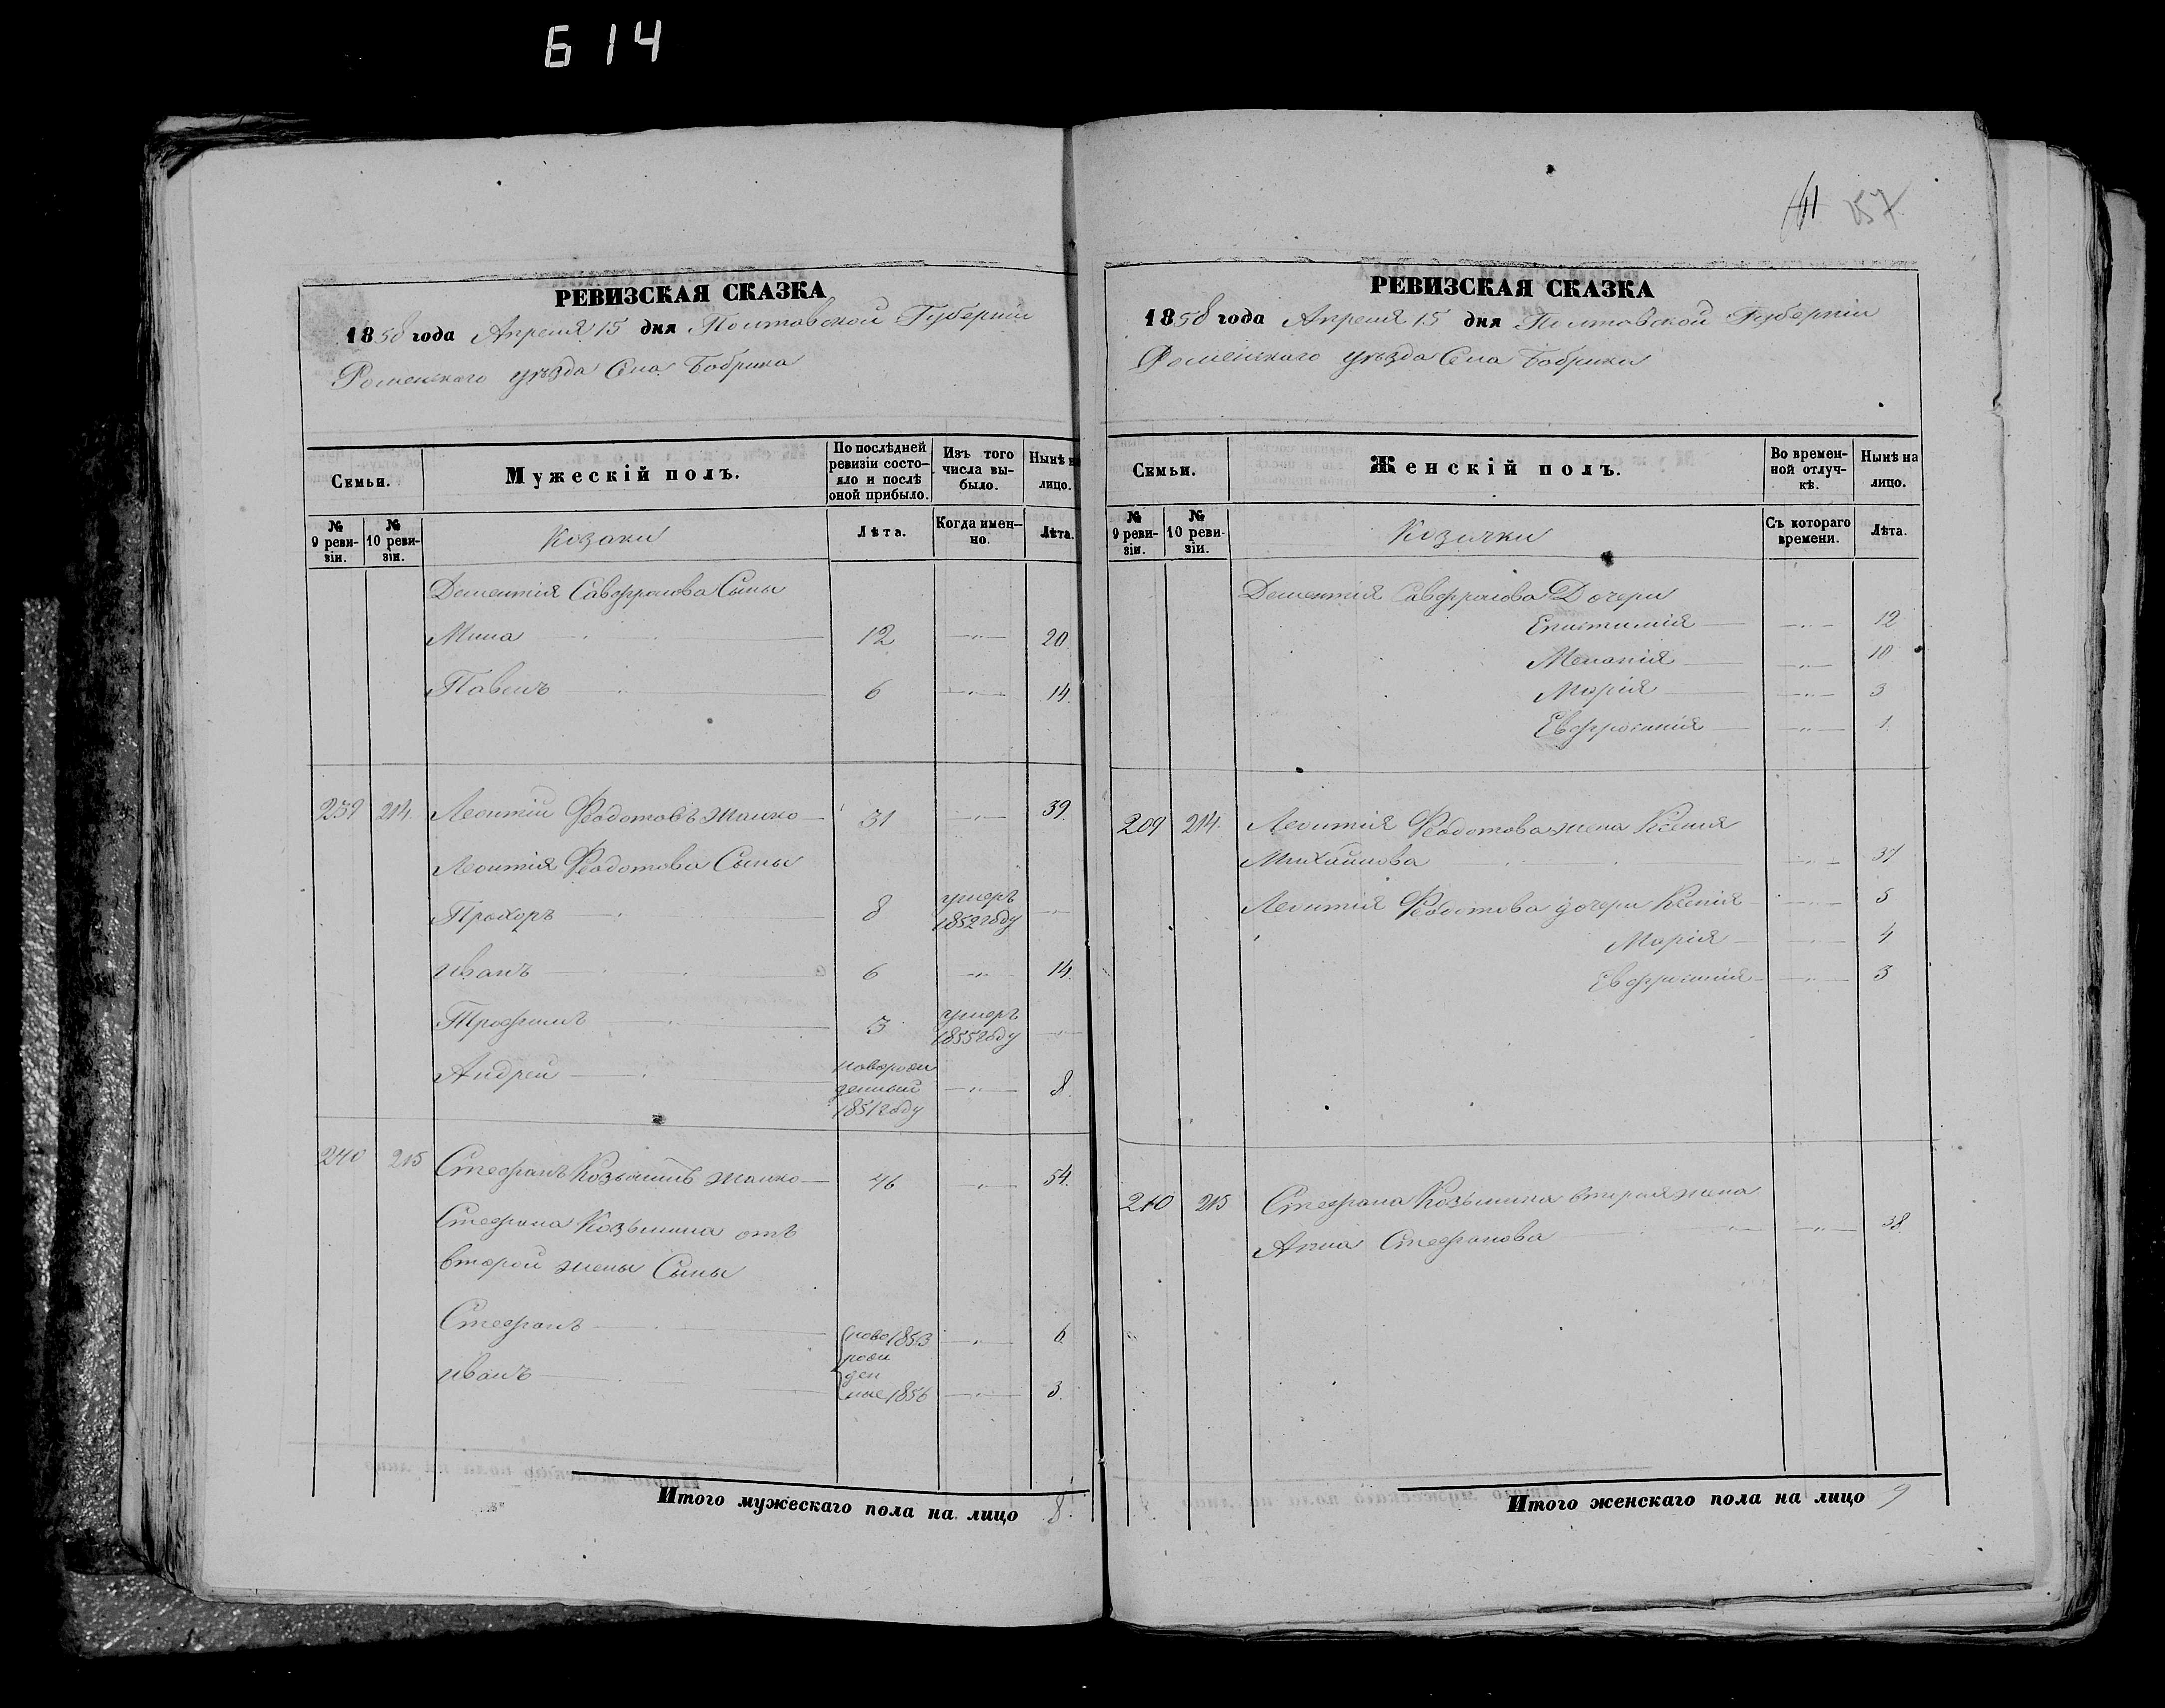 614
РЕВИЗСКАЯ СКАЗКА
1858 года Апреля 15 дня Полтавской Губерніи
Роменскаго уѣзда Села Бобрика
Семьи.
Мужескій полъ.
По послѣдней ревизіи состояло и послѣ оной прибыло.
Изъ того числа выбыло.
Нынѣ на лицо.
№ 9 ревизіи.
№ 10 ревизіи.
Козаки
Лѣта.
Когда именно.
Лѣта.
Дементія Савофронова Сыны
Мина 12 —"— 20.
Павелъ 6 —"— 14.
239 214. Леонтій Федотовъ 31 —"— 39.
Леонтія Федотова Сыны
Прохоръ 8 умеръ 1852 году —"—
Иванъ 6 —"— 14.
Трофимъ 3 умеръ 1855 году —"—
Андрей новорожденный 1851 году —"— 8.
240 215 Стефанъ Козьминъ 46 —"— 54.
Стефана Козьмина отъ
второй жены Сыны
Стефанъ новорожденные 1853 —"— 6
Иванъ 1856 —"— 3.
Итого мужескаго пола на лицо 8.
157
РЕВИЗСКАЯ СКАЗКА
1858 года Апреля 15 дня Полтавской Губерніи
Роменскаго уѣзда Села Бобрика
Семьи.
Женскій полъ.
Во временной отлучкѣ.
Нынѣ на лицо.
№ 9 ревизіи.
№ 10 ревизіи.
Козачки
Съ котораго времени.
Лѣта.
Дементія Савофронова Дочери
Епистимія —"— 12
Меланія —"— 10
Марія —"— 3
Евфросинія —"— 1
209 214. Леонтія Федотова жена Ксенія
Михайлова —"— 37
Леонтія Федотова дочери Ксенія —"— 5
Марія —"— 4
Евфросинія —"— 3
210 215 Стефана Козьмина вторая жена
Анна Стефанова —"— 38.
Итого женскаго пола на лицо 9